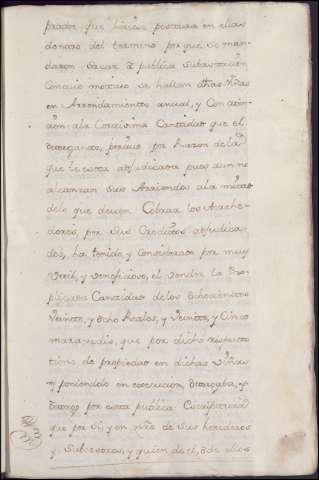 prador que hiciese postura en ellas
dentro del termino porque se man-
daron sacar a publica Subastacion
Con cuio motivo se hallan dhas Viñas
en Arrendamiento anual, y Con aten-
zion ala Cortisima Cantidad que el
otorgante, percive por Razon dela
que le esta adjudicada pues aun no
alcanzan sus Arriendos ala mitad
delo que devian Cobrar los Acrehe-
dores, por sus Creditos adjudica
dos, ha tenido, y Considerado por muy
Vtil, y veneficioso, el vender la
plicada Cantidad delos Ochocientos
Veinte, y Ocho Reales, y Veinte, y Cinco
maravedis, que por dicho respecto
tiene de propiedad en dichas Viñas
y poniendolo en execucion, Otorgaba, y
Otorgo por esta publica Escriptura
que por Si, y en Nre de sus herederos
y, Subcesores, y quien de el, o de ellos